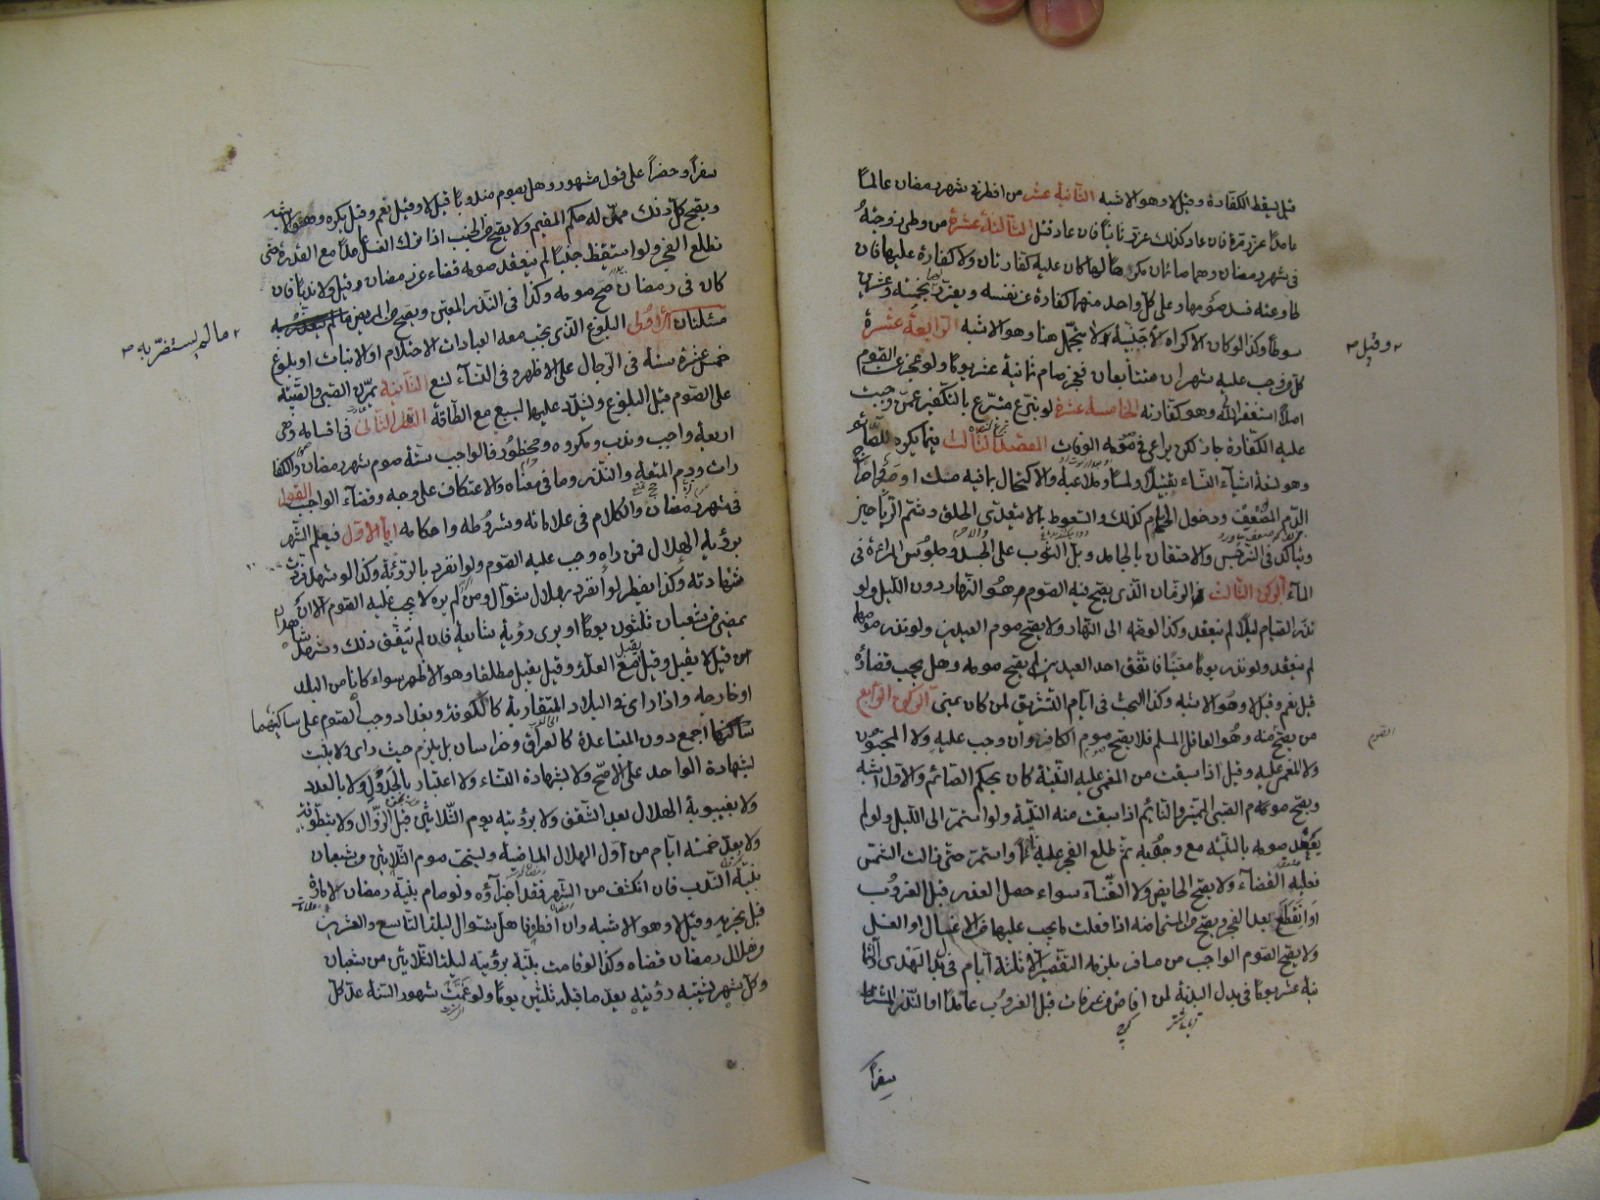 قيل يسقط الكفارة وقيل لا وهو الاشبه الثانية عشر من افطر فى شهر رمضان عالما
عامدا عزر مرة فان عاد كذلك عزر ثانيا فان عاد قتل الثالثة عشرة من وطئ زوجته
فى شهر رمضان وهما صائمان مكرها لها كان عليه كفارتان ولا كفارة عليها فان
طاوعته فسد صومهما وعلى كل واحد منهما كفارة عن نفسه ويعزر بخمسة وعشرين
سوطا وكذا لو كان الاكراه لاجنبية لا يتحمل هنا وهو الاشبه الرابعة عشرة
وقيل
كل من وجب عليه شهران متتابعان فعجز صام ثمانية عشر يوما ولو عجز عن الصوم
اصلا استغفر الله وهو كفارته الخامسة عشرة لو تبرع متبرع بالتكفير عمن وجبت
عليه الكفارة جاز لكن يراعى فى صومه الوفات المقصد الثالث فيما يكره للصائم
وهو تسعة اشياء النساء تقبيلا ولمسا وملاعبة والاكتحال بما فيه مسك او صبر واخراج
الدم المضعف ودخول الحمام كذلك والسعوط بما لا يتعدى الحلق وشم الرياحين
ويتاكد فى النرجس والاحتقان بالجامد وبل الثوب على الجسد وجلوس المراءة فى
الماء الركن الثالث فى الزمان الذى يصح فيه الصوم وهو النهار دون الليل ولو
نذر الصيام ليلا لم ينعقد وكذا لو ضمه الى النهار ولا يصح صوم العيدين ولو نذر صومهما
لم ينعقد ولو نذر يوما معينا فاتفق احد العيدين لم يصح صومه وهل يجب قضاؤه
قيل نعم وقيل لا وهو الاشبه وكذا البحث فى ايام التشريق لمن كان بمنى الركن الرابع
من يصح منه وهو العاقل المسلم فلا يصح صوم الكافر وان وجب عليه ولا المجنون
الصوم
ولا المغمى عليه وقيل اذا سبقت من المغمى عليه النية كان بحكم الصائم والاول اشبه
ويصح صوم الصبى المميز والنائم اذا سبقت منه النية ولو استمر الى الليل ولو لم
يعقد صومه بالنية مع وجوبه ثم طلع الفجر عليه نائما واستمر حتى زالت الشمس
فعليه القضاء ولا يصح الحايض ولا النفساء سواء حصل العذر قبل الغروب
او انقطع بعد الفجر ويصح من المستحاضة اذا فعلت ما يجب عليها من الاغسال او الغسل
ولا يصح الصوم الواجب من مسافر يلزمه التقصير الا ثلثة ايام فى بدل الهدى
نية عشر يوما فى بدل البدنة لمن افاض من عرفات قبل الغروب عامدا او النذر المشترط
سفرا
سفرا وحضرا على قول مشهور وهل يصوم مندوبا قيل لا وقيل نعم وقيل يكره وهو الاشبه
ويصح كل ذلك ممن له حكم المقيم ولا يصح من الجنب اذا ترك الغسل عامدا مع القدرة حتى
يطلع الفجر ولو استيقظ جنبا لم ينعقد صومه قضاء عن رمضان وقيل ولا ندبا فان
كان فى رمضان صح صومه وكذا فى النذر المعين ويصح من المريض
ما لم يستضر به
مسئلتان الاولى البلوغ الذى يجب معه العبادات الاحتلام او الانبات او بلوغ
خمس عشرة سنة فى الرجال على الاظهر وفى النساء تسع الثانية يمرن الصبى والصبية
على الصوم قبل البلوغ ويشدد عليهما لسبع مع الطاقة النظر الثانى فى اقسامه وهى
اربعة واجب وندب ومكروه ومحظور فالواجب ستة صوم شهر رمضان والكفا
رات ودم المتعة والنذر وما فى معناه والاعتكاف على وجه وقضاء الواجب القول
فى شهر رمضان والكلام فى علامته وشروطه واحكامه اما الاول فيعلم الشهر
برؤية الهلال فمن راه وجب عليه الصوم ولو انفرد بالرؤية وكذا لو شهد فردت
شهادته وكذا يفطر لو انفرد بهلال شوال ومن لم يره لا يجب عليه الصوم الا ان
يمضى من شعبان ثلثون يوما او يرى رؤية شايعة فان لم يتفق ذلك وشهد شاهدان
قيل لا يقبل وقيل يقبل مع العلة وقيل يقبل مطلقا وهو الاظهر سواء كانا من البلد
او خارجه واذا راى فى البلاد المتقاربة كالكوفة وبغداد وجب الصوم على ساكنيهما
اجمع دون المتباعدة كالعراق وخراسان بل يلزم حيث راى ولا يثبت
بشهادة الواحد على الاصح ولا بشهادة النساء ولا اعتبار بالجدول ولا بالعدد
ولا بغيبوبة الهلال بعد الشفق ولا برؤيته يوم الثلاثين قبل الزوال ولا بتطوقه
ولا بعد خمسة ايام من اول الهلال الماضية ويستحب صوم الثلاثين من شعبان
بنية الندب فان انكشف من الشهر فقد اجزاؤه ولو صام بنية رمضان لامارة
قيل يجزيه وقيل لا وهو الاشبه وان افطر فاهل شوال ليلة التاسع والعشرين
من هلال رمضان قضاه وكذا لو قامت بينة برؤيته ليلة الثلاثين من شعبان
وكل شهر يشتبه رؤيته يعد ما قبله ثلثين يوما ولو غمت شهور السنة عد كل